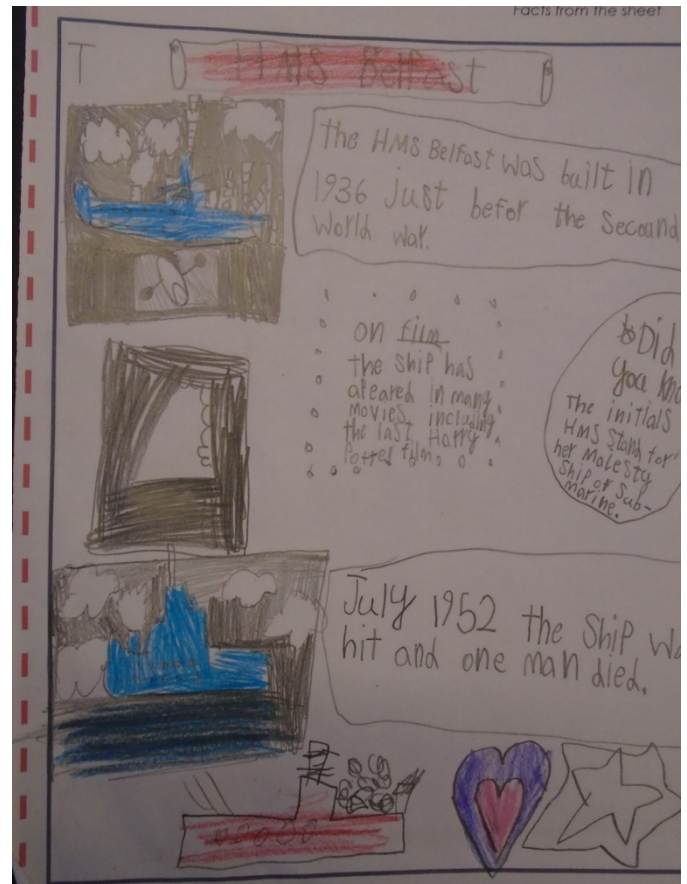 Facts from the sheet
T
HMS Belfast
the HMS Belfast was built in
1936 just befor the Secoand
World war.
on film
the ship has
apeared in many
movies including
the last Harry
Potter film.
Did
you kno
The initials
HMS Stand for
her Majesty
Ship or Sub-
marine.
July 1952 the ship wa
hit and one man died.